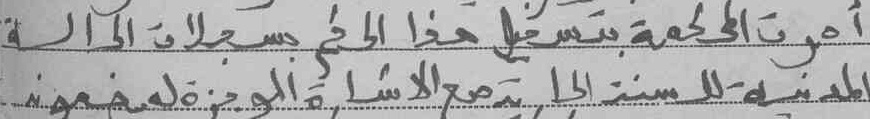 أمرت المحكمة بتسجيل هذا الحكم بسجلات الحالة
المدنية للسنة الجارية مع الاشارة الموجزة لمضمونه